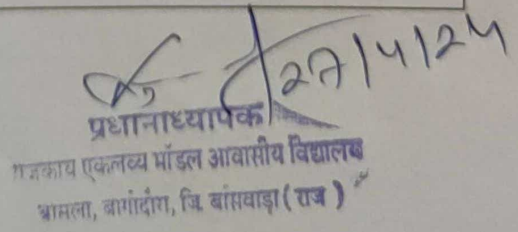 27/4/24
प्रधानाध्यापक
राजकीय एकलव्य मॉडल आवासीय विद्यालय
बागीदौरा, जि. बांसवाड़ा (राज)